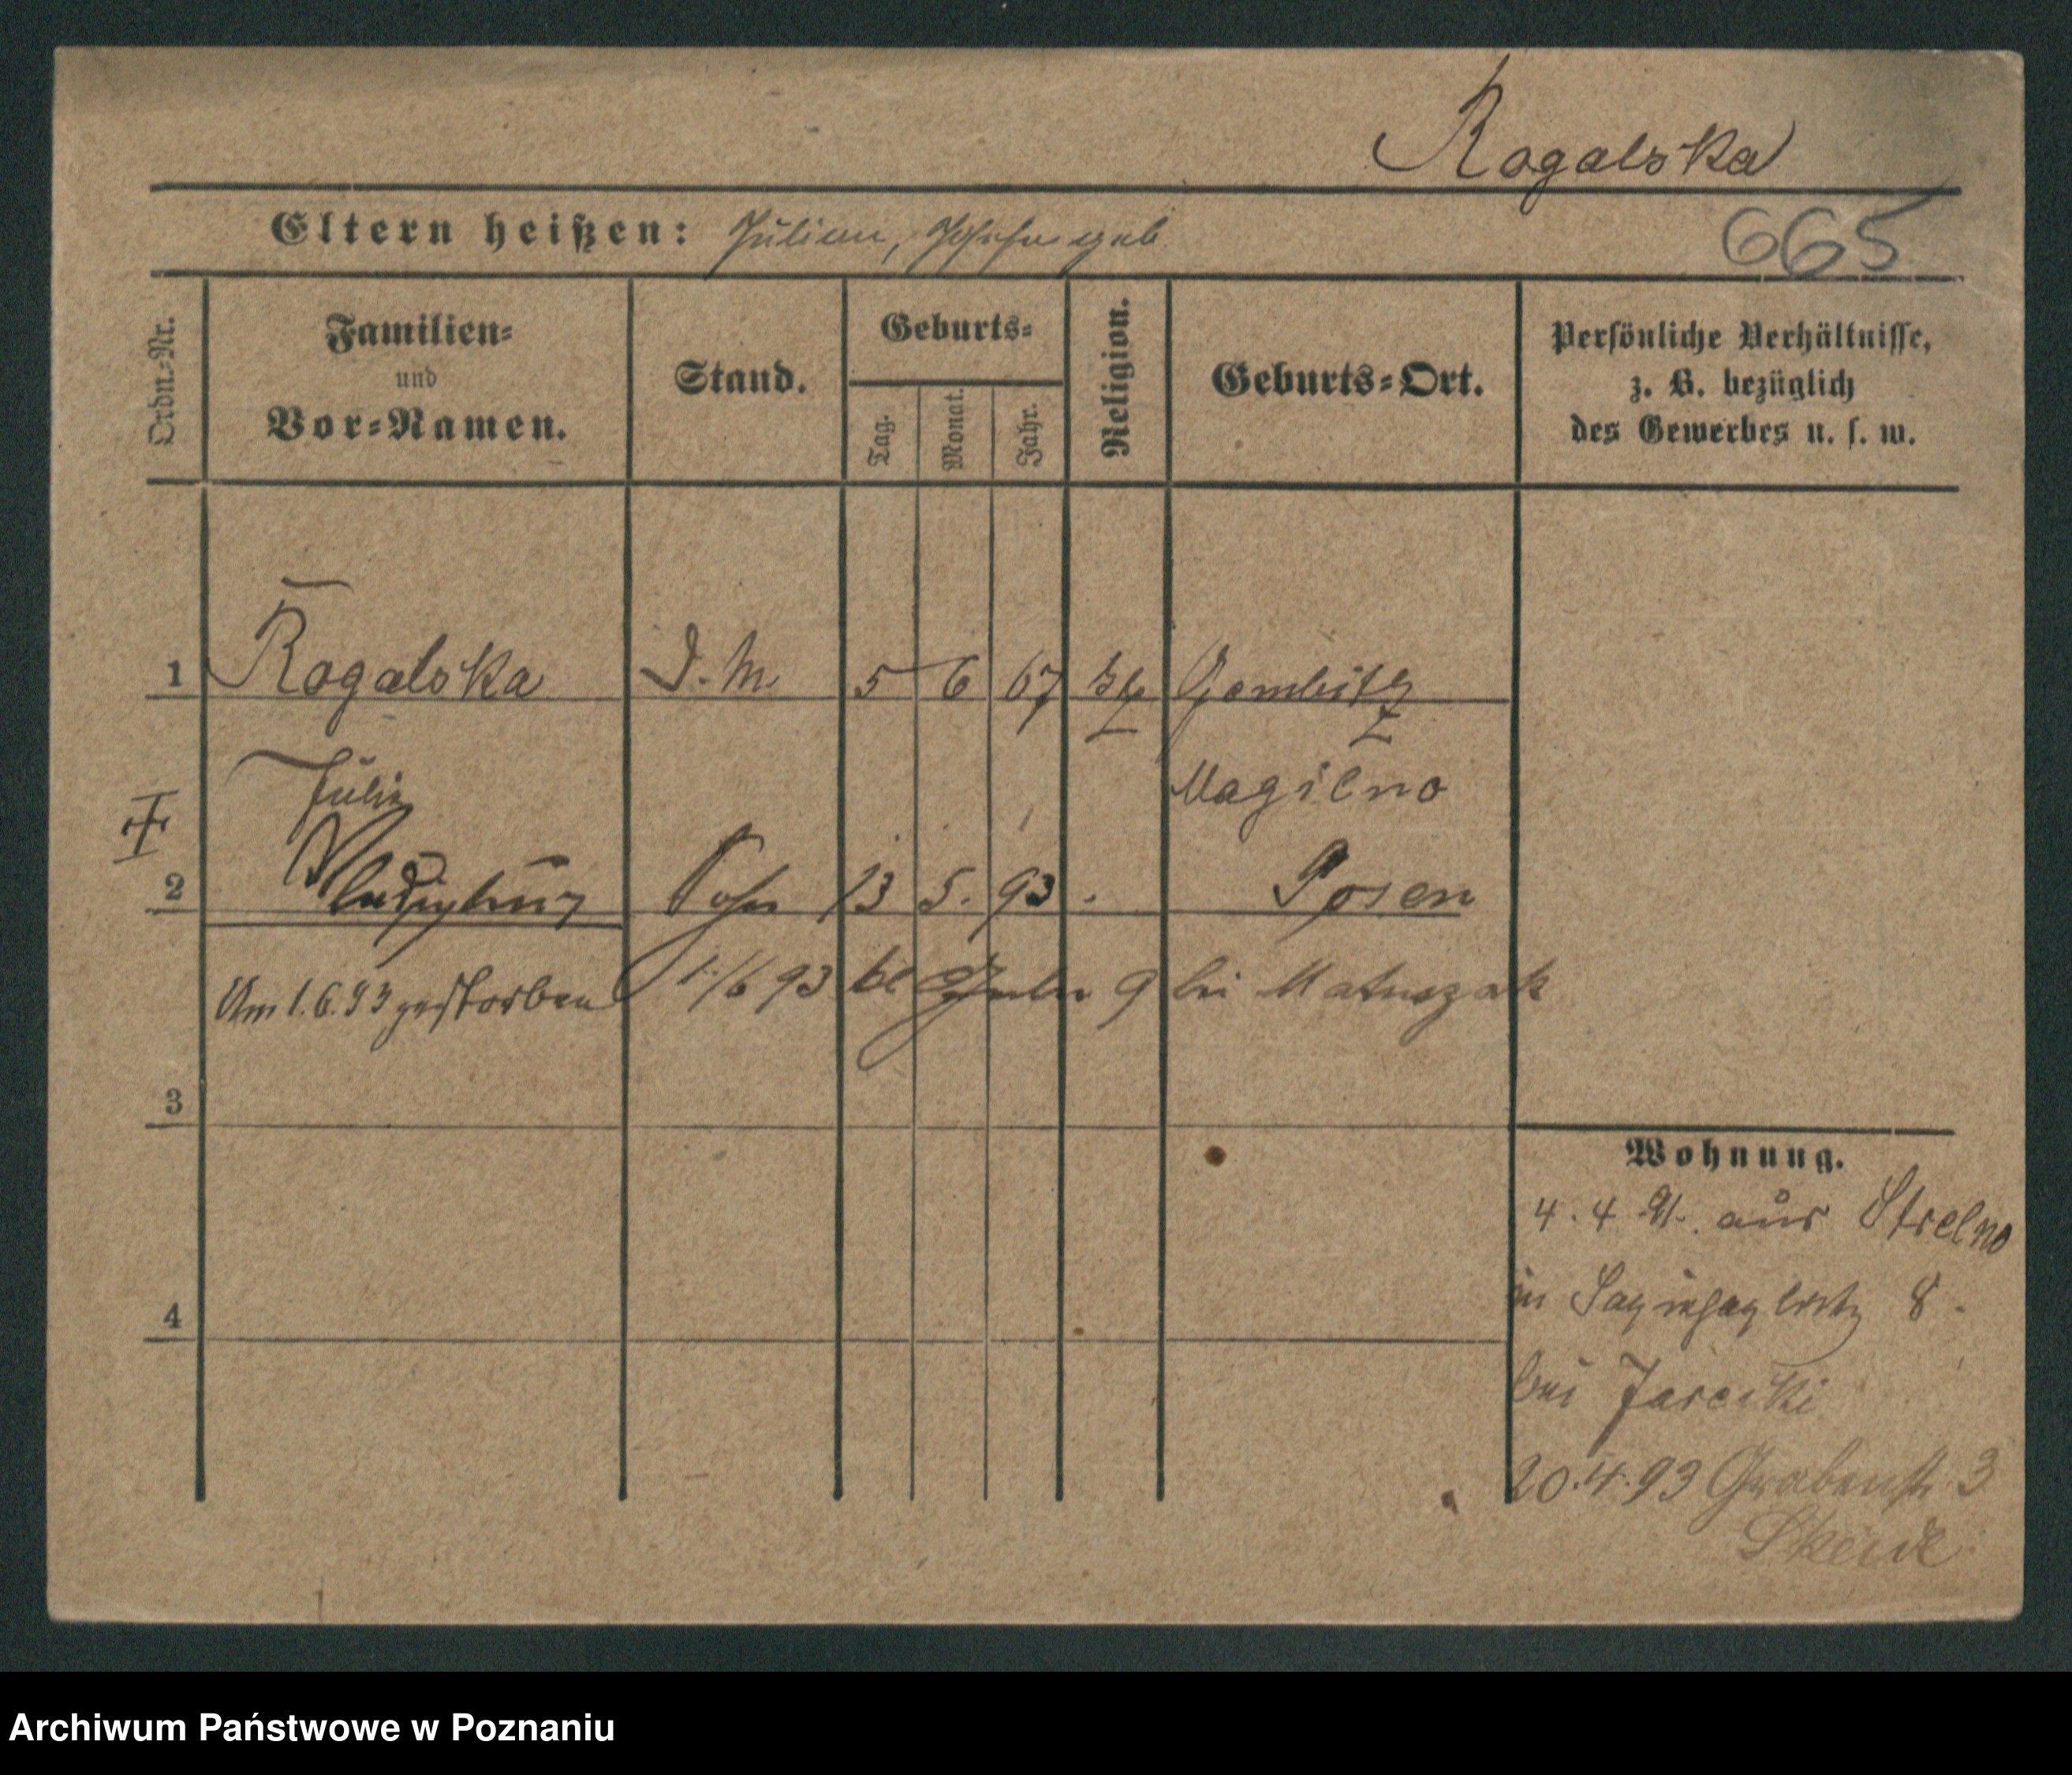 Rogalska
Eltern heißen: Julian, Josefa geb.
665
Ordn.-Nr.
Familien-
und
Vor-Namen.
Stand.
Geburts-
Tag.
Monat.
Jahr.
Religion.
Geburts-Ort.
Persönliche Verhältnisse,
z. B. bezüglich
des Gewerbes u. s. w.
1 Rogalska D. M. 5 6 67 Gembitz
Julia Mogilno
2 Sohn 13 5. 93 Posen
Am 1.6.93 gestorben 1/6 93 9 bei Matuszak
3
4
Wohnung.
4. 4 91. aus Strelno
in Sapiehaplatz 8.
bei Jarecki
20.4.93 Grabenstr. 3
Archiwum Państwowe w Poznaniu